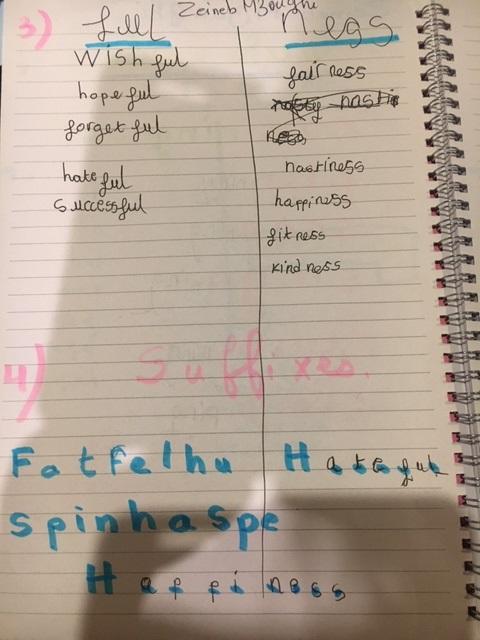 Zeineb M3oughi
3) ful ness
wishful
hopeful
forgetful
hateful
successful
fairness
nastiness
happiness
fitness
kindness
4) Suffixes.
Fatfelhu Hateful
spinhaspe
Happiness